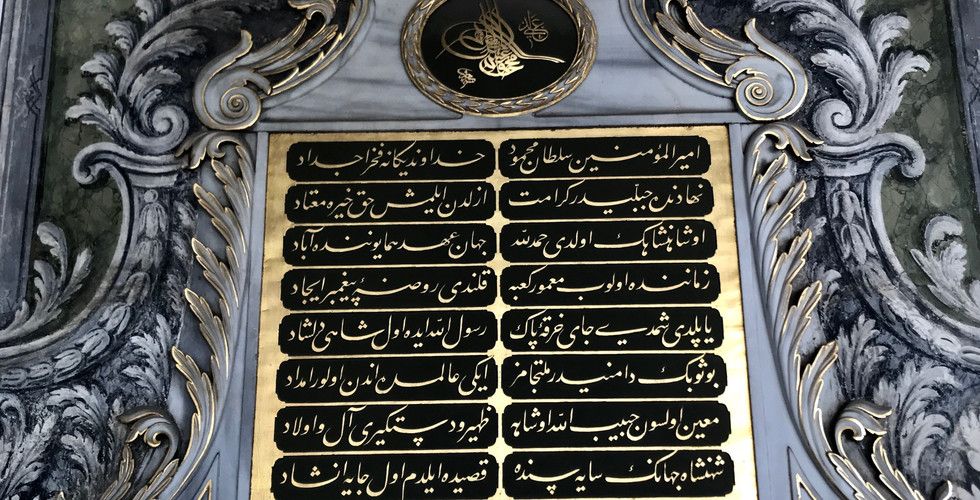 امیرالمؤمنین سلطان محمود خداوند یگانه فخر اجداد
نهادنده جبلیدر کرامت ازلدن ایلمش حق خیره معتاد
او شاهنشاهک اولدی حمدلله جهان عهد همایوننده آباد
زماننده اولوب معمور کعبه قلندی روضهٔ پیغمبر ایجاد
یاپلدی شمدی جای خرقهٔ پاک رسول اللهی ایده اول شاهی دلشاد
بو ثوبک دامنیدر ملتجامز ایکی عالمده اندن اولور امداد
معین اولسون حبیب الله او شاهه ظهیر و دستگیری آل و اولاد
شهنشاه جهانک سایه سنده قصیده ایلدم اول جایه انشاد